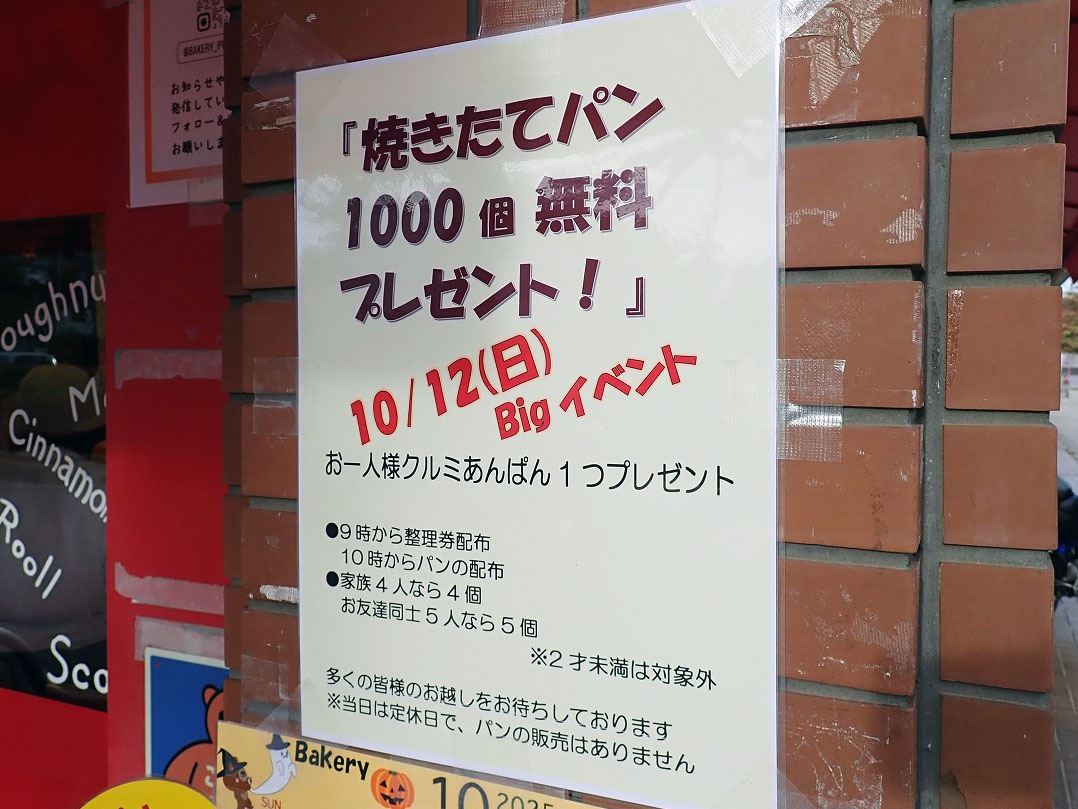 @BAKERY_P
お知らせや
発信してい
フォロー&
お願いしま
『焼きたてパン
1000個 無料
プレゼント！』
10/12(日)
Bigイベント
お一人様クルミあんぱん1つプレゼント
●9時から整理券配布
10時からパンの配布
●家族4人なら4個
お友達同士5人なら5個
※2才未満は対象外
多くの皆様のお越しをお待ちしております
※当日は定休日で、パンの販売はありません
oughnu
M
Cinnamon
Rooll
Sco
Bakery
10 2025
SUN